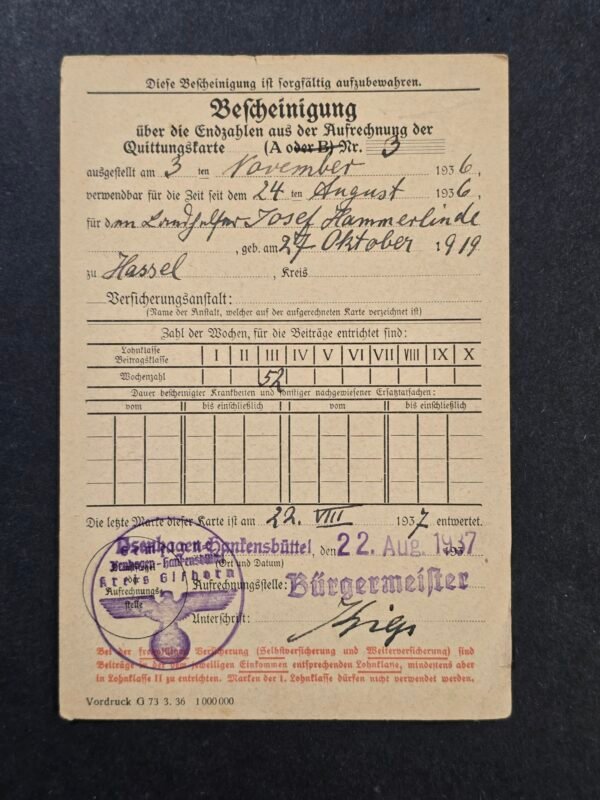 Diese Bescheinigung ist sorgfältig aufzubewahren.
Bescheinigung
über die Endzahlen aus der Aufrechnung der
Quittungskarte (A oder B) Nr. 3
ausgestellt am 3 ten November 1936,
verwendbar für die Zeit seit dem 24 ten August 1936,
für den Landhelfer Josef Hammerlinde
, geb. am 27 Oktober 1919
zu Hassel, Kreis
Versicherungsanstalt:
(Name der Anstalt, welcher auf der aufgerechneten Karte verzeichnet ist)
Zahl der Wochen, für die Beiträge entrichtet sind:
Lohnklasse
Beitragsklasse I II III IV V VI VII VIII IX X
Wochenzahl 52
Dauer bescheinigter Krankheiten und sonstiger nachgewiesener Ersatztatsachen:
vom bis einschließlich vom bis einschließlich
Die letzte Marke dieser Karte ist am 22. VIII 1937 entwertet.
Isenhagen-Hankensbüttel, den 22. Aug. 1937 193
(Ort und Datum)
Isenhagen-Hankensbüttel
Kreis Gifhorn
oder
Aufrechnungs-
stelle
Aufrechnungsstelle: Bürgermeister
Unterschrift:
Bei der freiwilligen Versicherung (Selbstversicherung und Weiterversicherung) sind
Beiträge in der dem jeweiligen Einkommen entsprechenden Lohnklasse, mindestens aber
in Lohnklasse II zu entrichten. Marken der 1. Lohnklasse dürfen nicht verwendet werden.
Vordruck G 73 3. 36 1 000 000